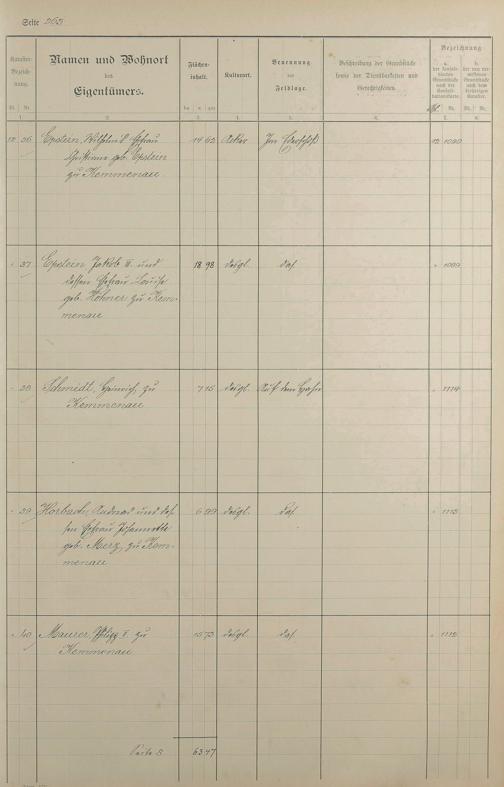 Seite 263
Kataster-
Bezeich-
nung.
Bl. Nr.
Namen und Wohnort
des
Eigentümers.
Flächen-
inhalt.
ha a qm
Kulturart.
Benennung
der
Feldlage.
Beschreibung der Grundstücke
sowie der Dienstbarkeiten und
Gerechtigkeiten.
Bezeichnung
a.
b.
Bl. Nr.
Bl. Nr.
1. 2. 3. 4. 5. 6. 7. 8.
12 36 Epstein, Wilhelm Ehefrau 14 63 Acker Im 12 1090
Christiane geb. Epstein
zu Kemmenau
" 37 Epstein Jakob II. und 18 98 desgl. das. " 1099
dessen Ehefrau Louise
geb. Höhner zu Kem-
menau
" 38 Schmidt, Heinrich, zu 7 15 desgl. Auf dem Hahn " 1114
Kemmenau
" 39 Horbach, Andreas und des- 6 99 desgl. das. " 1113
sen Ehefrau Johannette
geb. Merz, zu Kem-
menau
" 40 Maurer, Philipp I. zu 15 73 desgl. das. " 1112
Kemmenau
Seite S. 63 47